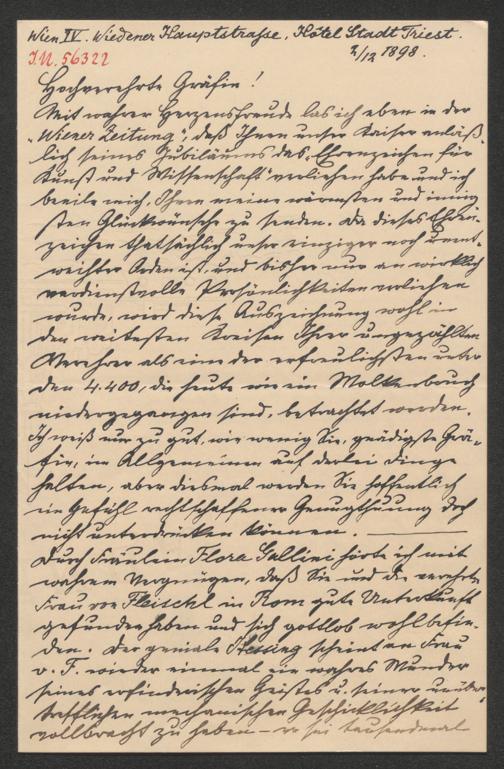 Wien IV. Wiedener Hauptstrasse, Hôtel Stadt Triest.
2/12 1898.
I.N. 56322
Hochverehrte Gräfin!
Mit wahrer Herzensfreude las ich eben in der
„Wiener Zeitung", daß Ihnen unser Kaiser anläß-
lich seines Jubiläums das „Ehrenzeichen für
Kunst und Wissenschaft" verliehen habe und ich
beeile mich, Ihnen meine wärmsten und innig-
sten Glückwünsche zu senden. Da dieses Ehren-
zeichen thatsächlich unser einziger noch unent-
weihter Orden ist, und bisher nur an wirklich
verdienstvolle Persönlichkeiten verliehen
wurde, wird diese Auszeichnung wohl in
den weitesten Kreisen Ihrer ungezählten
Verehrer als eine der erfreulichsten unter
den 4.400, die heute wie ein Wolkenbruch
niedergegangen sind, betrachtet werden.
Ich weiß nur zu gut, wie wenig Sie, gnädigste Grä-
fin, im Allgemeinen auf derlei Dinge
halten, aber diesmal werden Sie hoffentlich
ein Gefühl rechtschaffener Genugthuung doch
nicht unterdrücken können. —
Durch Fräulein Flora Gallini hörte ich mit
wahrem Vergnügen, daß Sie und die verehrte
Frau von Fleischl in Rom gute Unterkunft
gefunden haben und sich gottlob wohl befin-
den. Der geniale Hessing scheint an Frau
v. F. wieder einmal ein wahres Wunder
seines erfinderischen Geistes u. seiner unüber-
trefflichen mechanischen Geschicklichkeit
vollbracht zu haben – er sei tausendmal